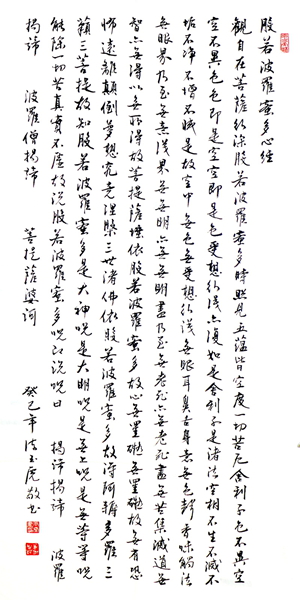 般若波羅蜜多心經
觀自在菩薩行深般若波羅蜜多時照見五蘊皆空度一切苦厄舍利子色不異空
空不異色色即是空空即是色受想行識亦復如是舍利子是諸法空相不生不滅不
垢不淨不增不減是故空中無色無受想行識無眼耳鼻舌身意無色聲香味觸法
無眼界乃至無意識界無無明亦無無明盡乃至無老死亦無老死盡無苦集滅道無
智亦無得以無所得故菩提薩埵依般若波羅蜜多故心無罣礙無罣礙故無有恐
怖遠離顛倒夢想究竟涅槃三世諸佛依般若波羅蜜多故得阿耨多羅三
藐三菩提故知般若波羅蜜多是大神咒是大明咒是無上咒是無等等咒
能除一切苦真實不虛故說般若波羅蜜多咒即說咒曰 揭諦揭諦 波羅
揭諦 波羅僧揭諦 菩提薩婆訶
癸巳年 玉虎敬書